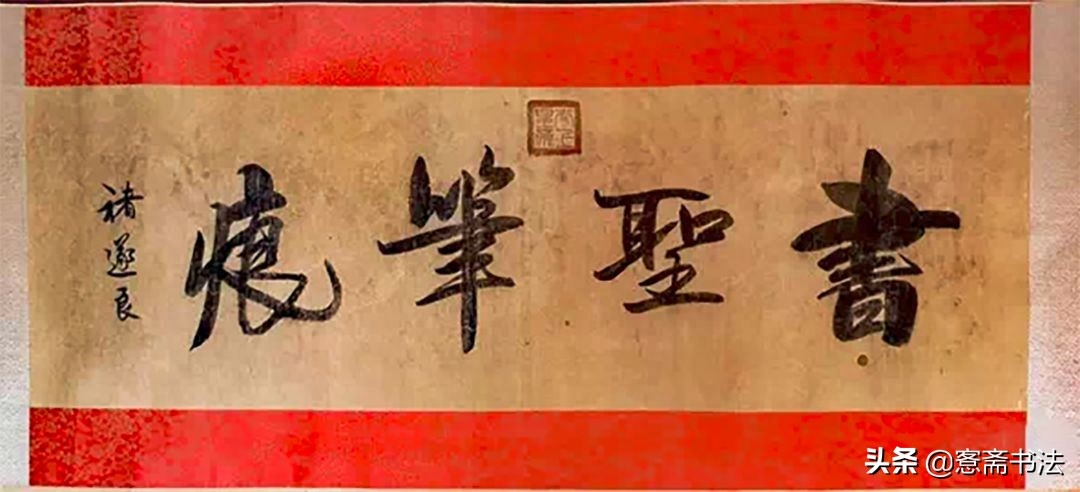 書聖筆痕
褚遂良
头条 @窓斋书法